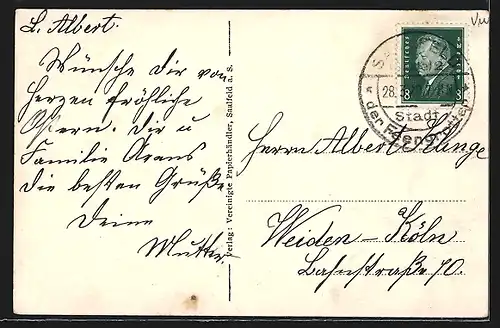 L. Albert.
Wünsche Dir von
Herzen fröhliche
Ostern. Dir u
Familie
die besten Grüße
Deine
Mutter
Verlag: Vereinigte Papierhändler, Saalfeld a. S.
Deutsches Reich
8 8
28.3.
Stadt
der Feengrotten
Herrn Albert Klinge
Weiden – Köln
Bahnstraße 70.